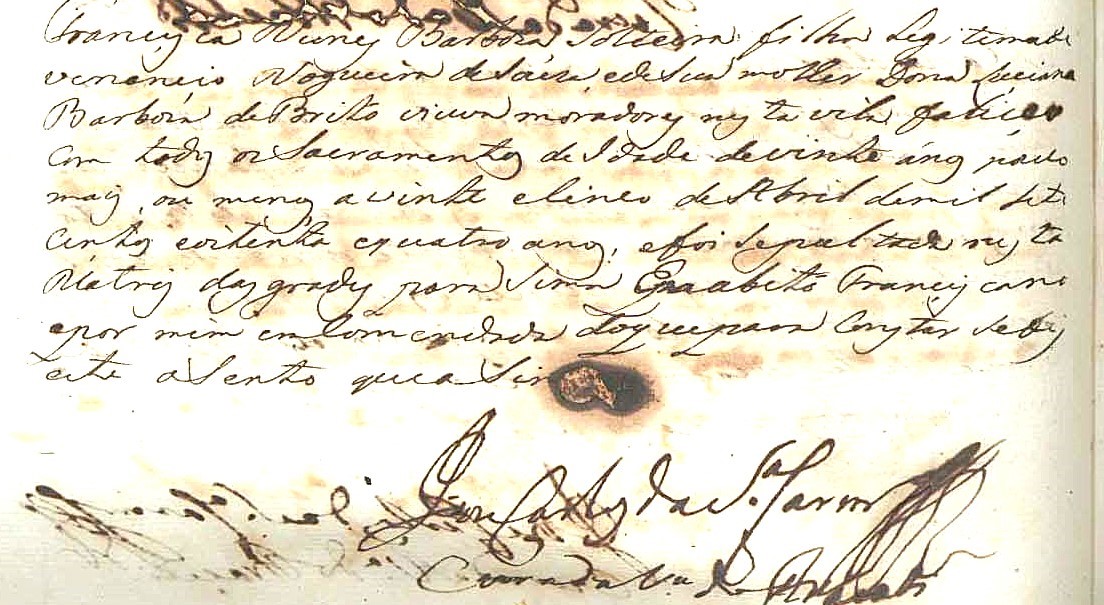 Francisca Nunes Barboza Solteira filha Legitima de
venancio Nogueira de Souza, e de Sua molher Dona Luciana
Barboza de Brito viuva moradores nesta vila faliceo
com todos os Sacramentos de Idade de vinte ános pouco
mais, ou menos a vinte e sinco de Abril de mil sete
centos e oitenta e quatro anos, e foi sepultada nesta
Matris das grades para Sima Em abito Franciscano
e por mim emComendada do que para Constar se fes
este aSento que aSin
da S.ta
Cura da V.a do